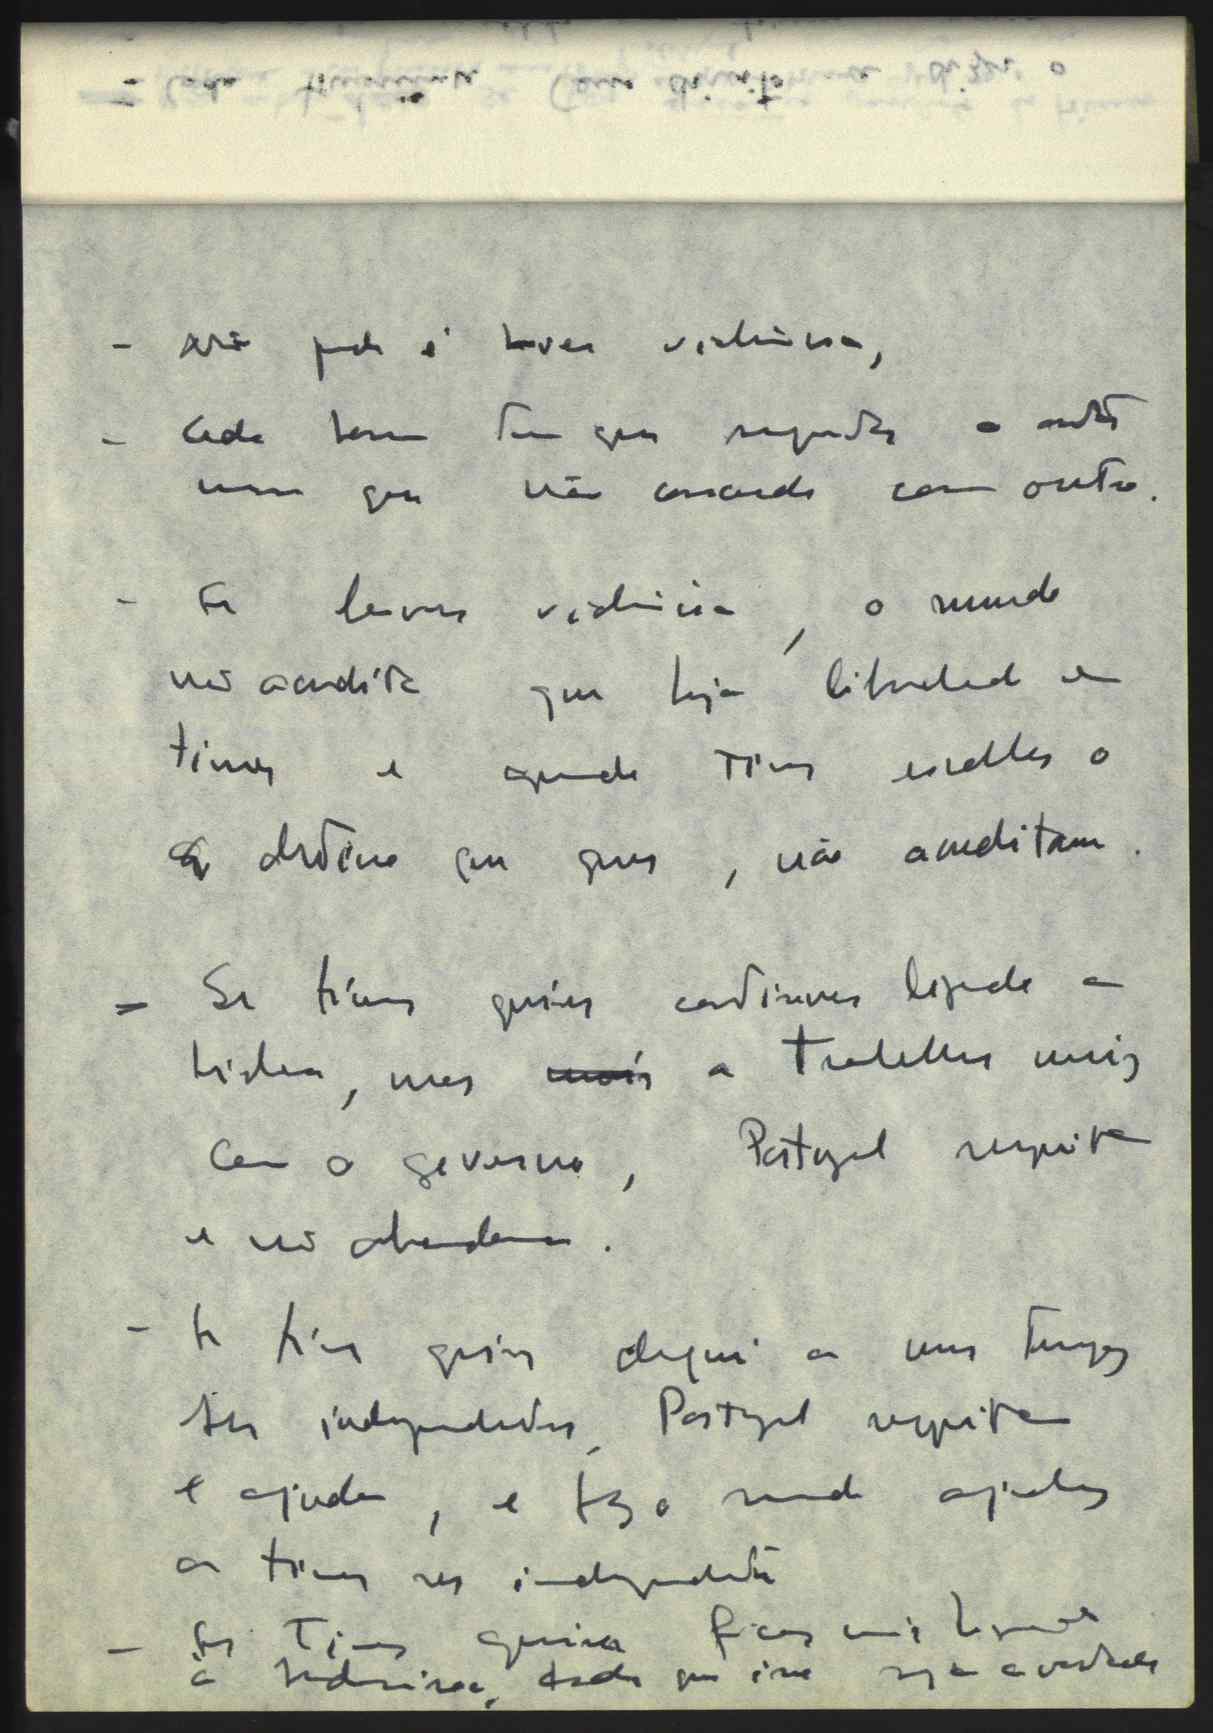 - não pode é haver violência,
- Cada homem tem que respeitar o outro
mesmo que não concorde com outro.
- Se houver violência, o mundo
não acredita que haja liberdade em
timor e quando Timor escolher o
destino que quer, não acreditam.
- Se timor quiser continuar ligado a
Lisboa, mas a trabalhar mais
com o governo, Portugal respeita
e não abandona.
- Se timor quiser daqui a uns tempos
ser independente, Portugal respeita
e ajuda, e faz o mundo ajudar
a timor ser independente
- Se Timor quiser ficar mais ligado
à Indonésia, desde que isso seja a verdade